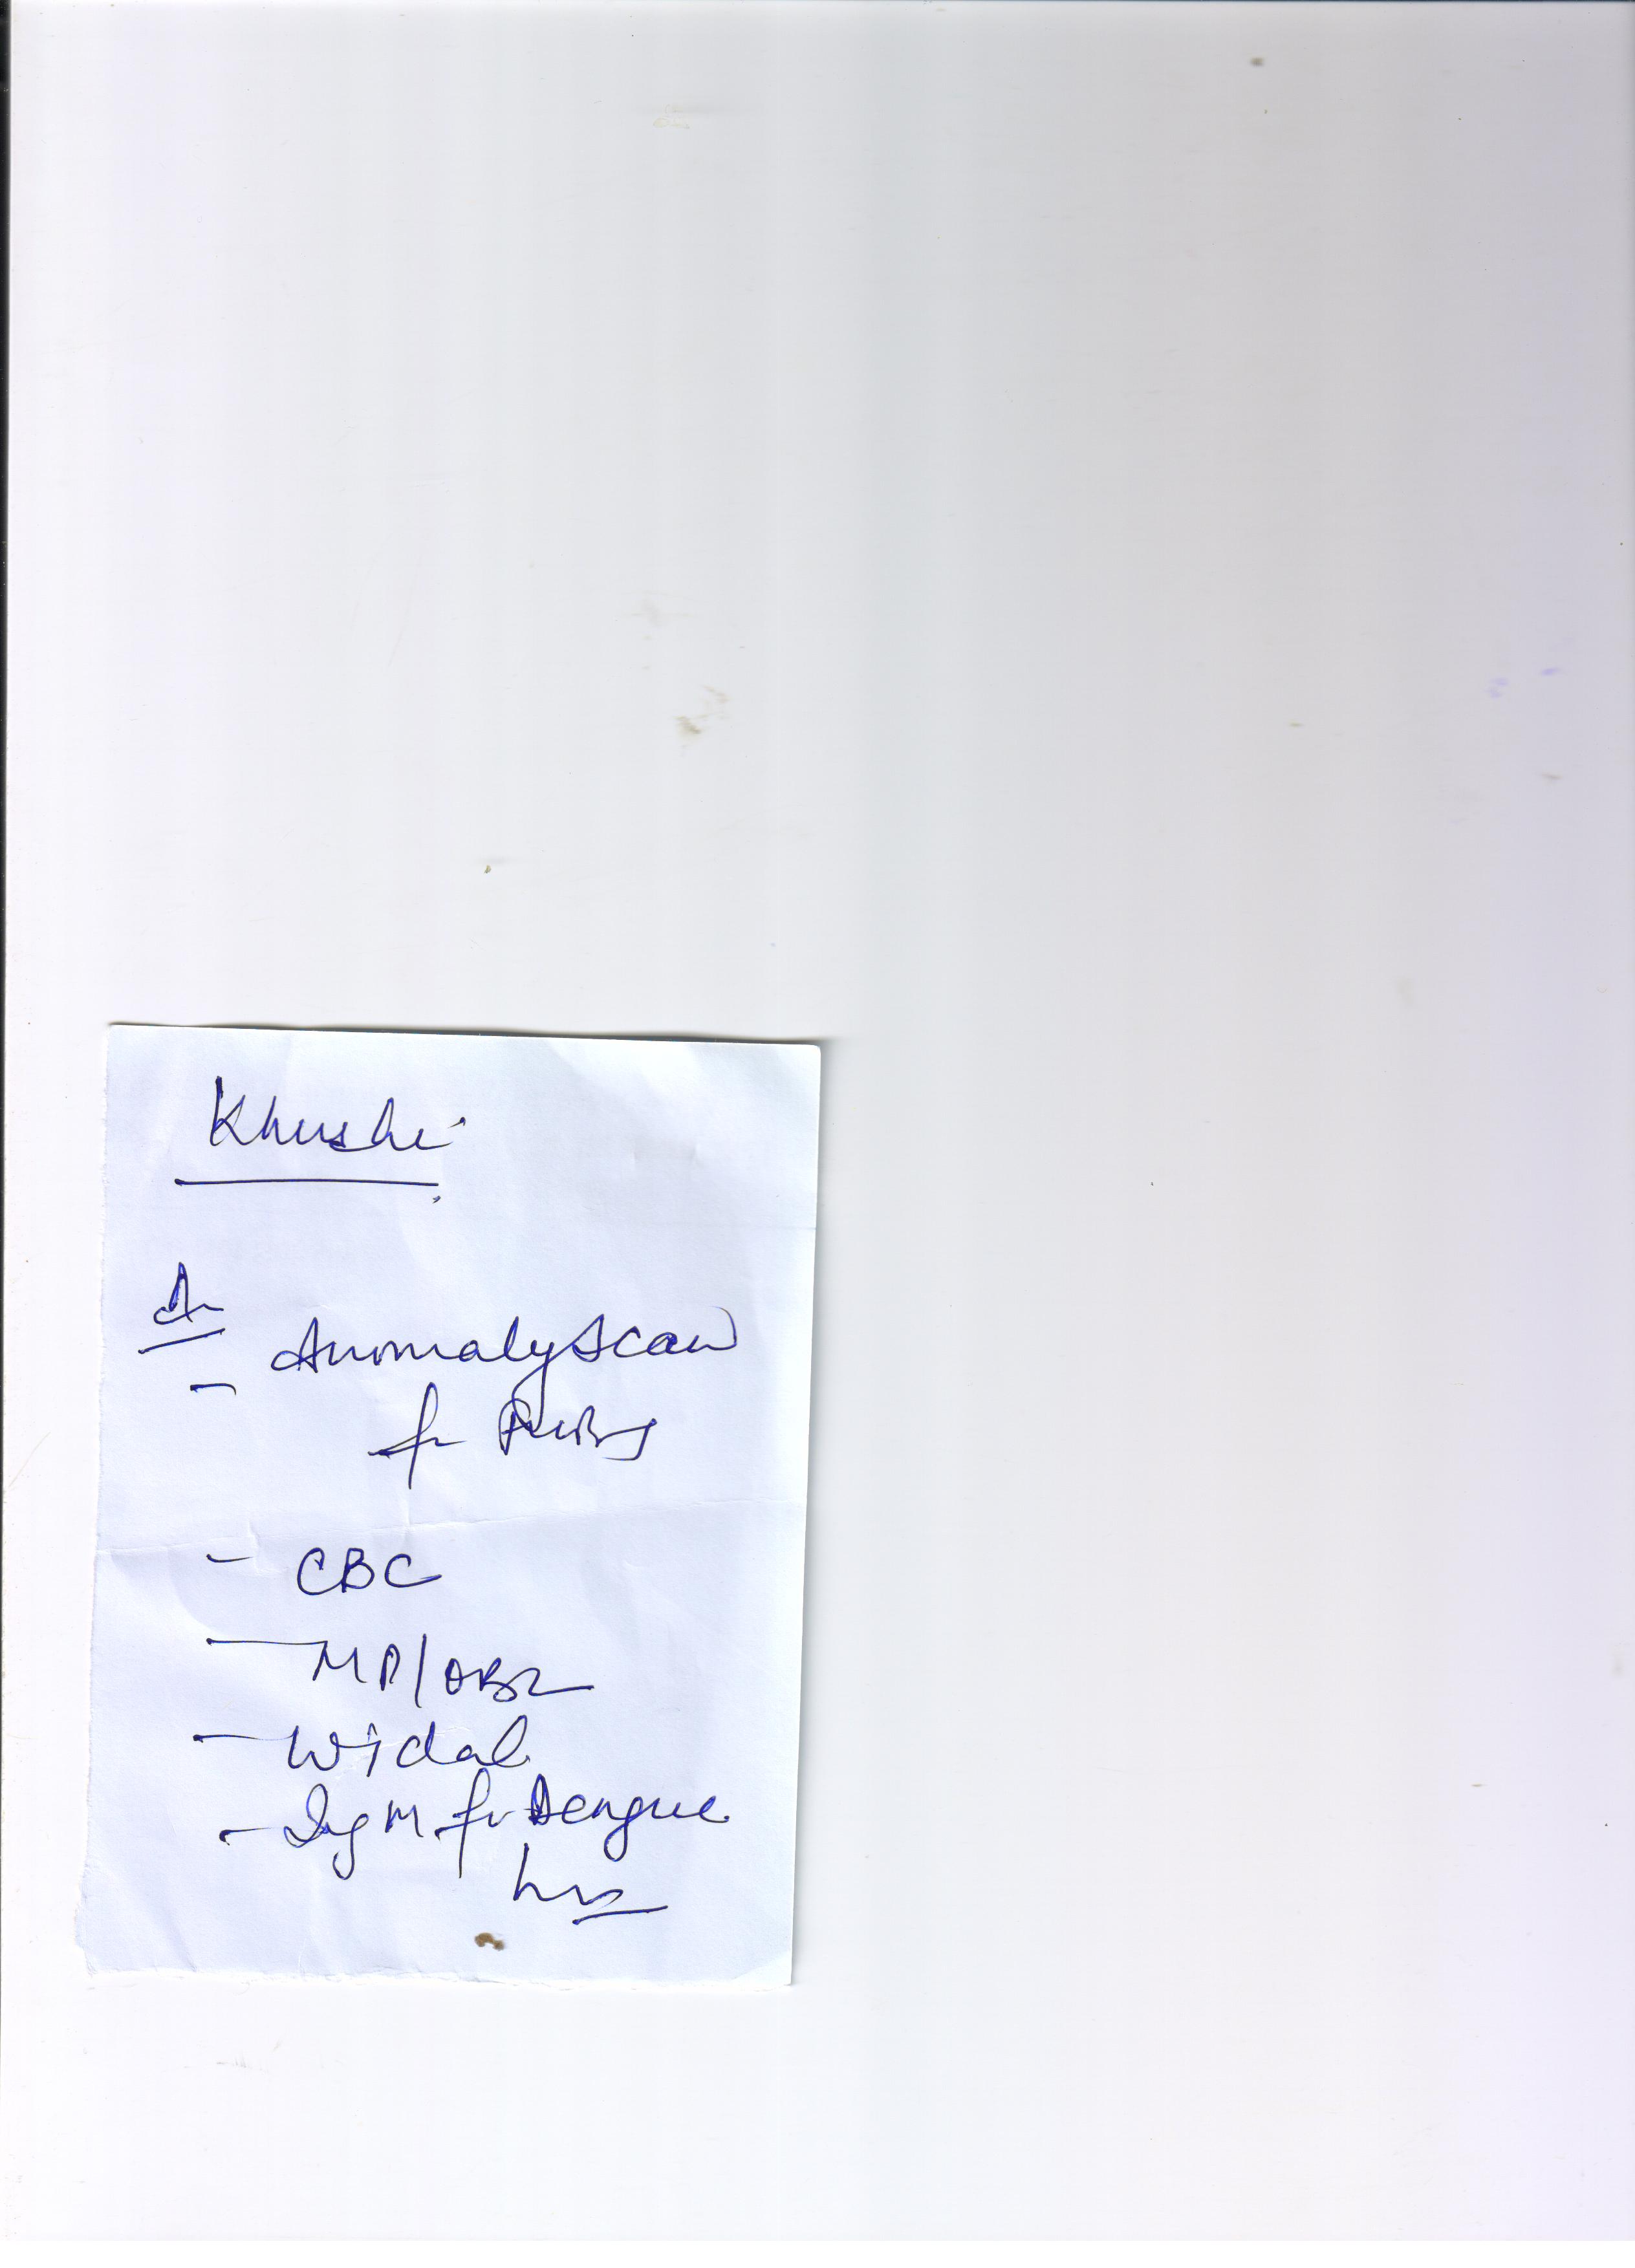 Khushi
Anomaly Scan
for
- CBC
- MP/
- Widal
- IgM for Dengue